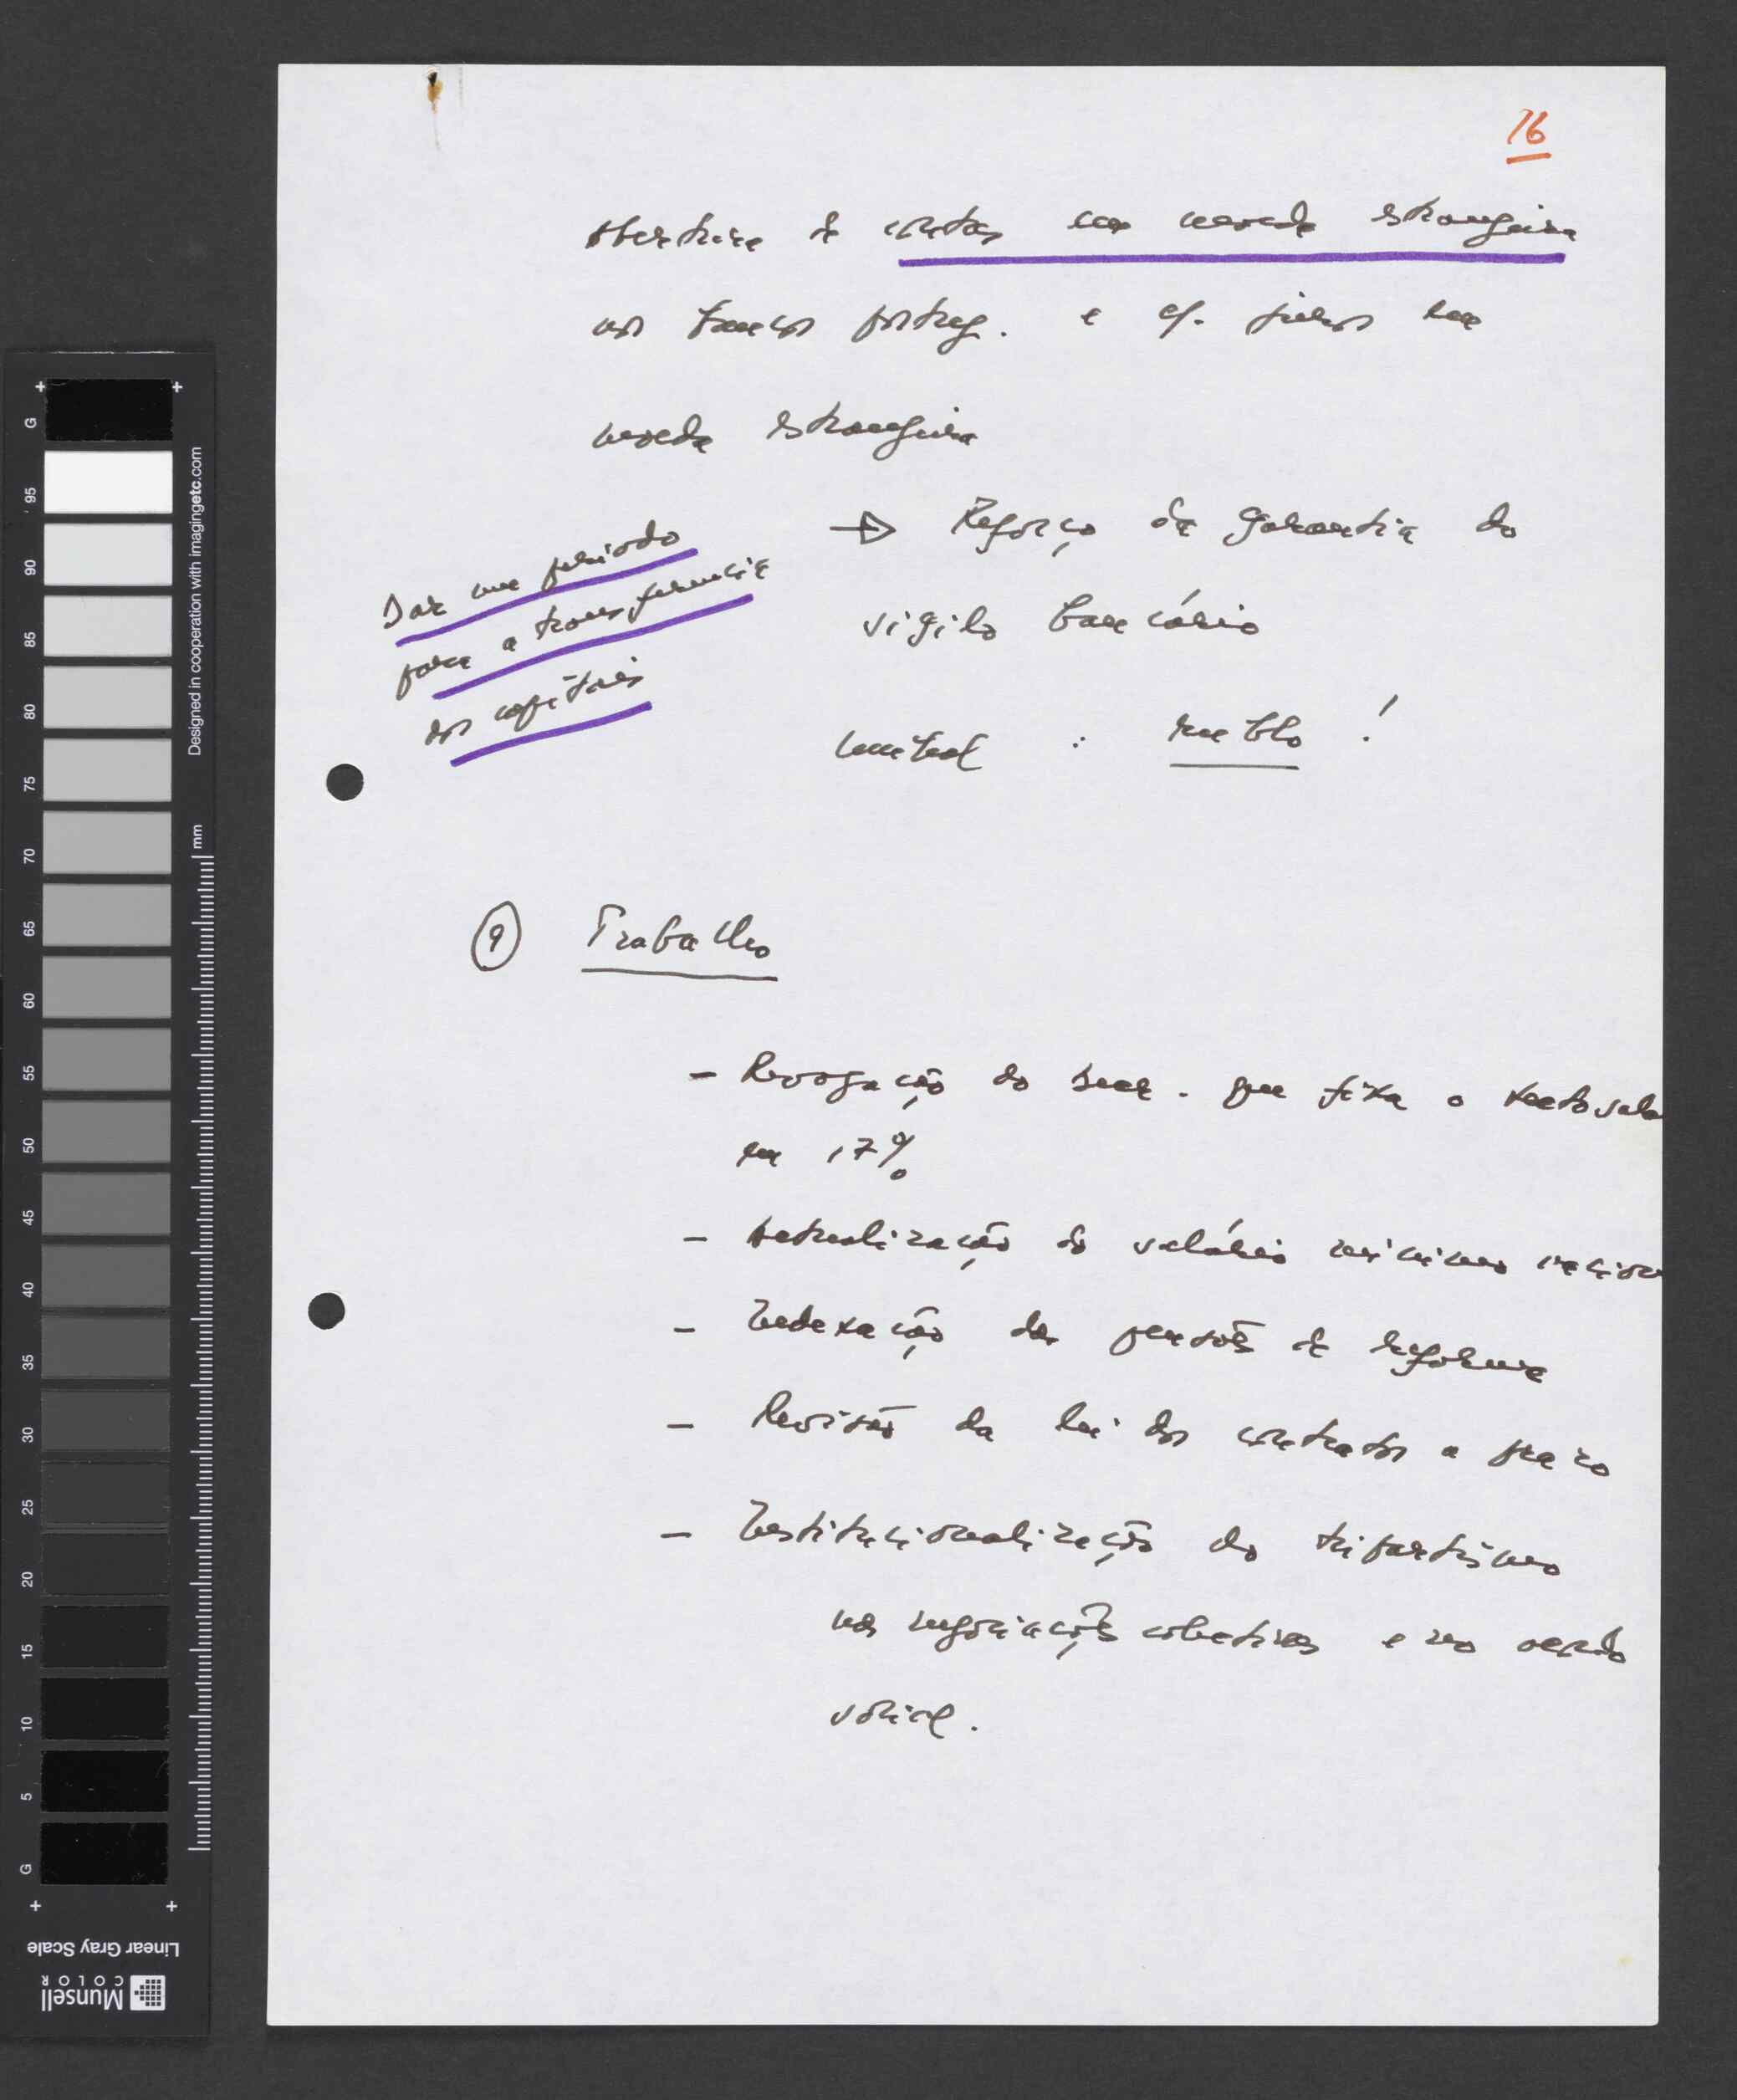 16
Abertura de contas em moeda estrangeira
nos bancos portug. e c/. juros em
moeda estrangeira
→ Reforço da garantia do
sigilo bancário
Dar um período
para a transferência
dos capitais
: !
9 Trabalho
- Revogação do que fixa o tecto sala
em 17%
- Actualização do salário mínimo nacion
- Indexação das pensões de reforma
- Revisão da lei dos contratos a prazo
- Institucionalização do tripartismo
nas negociações colectivas e no acordo
social.
G
95
90
85
80
75
70
65
60
55
50
45
40
35
30
25
20
15
10
5
G
mm
Designed in cooperation with imagingetc.com
Linear Gray Scale
Munsell
COLOR